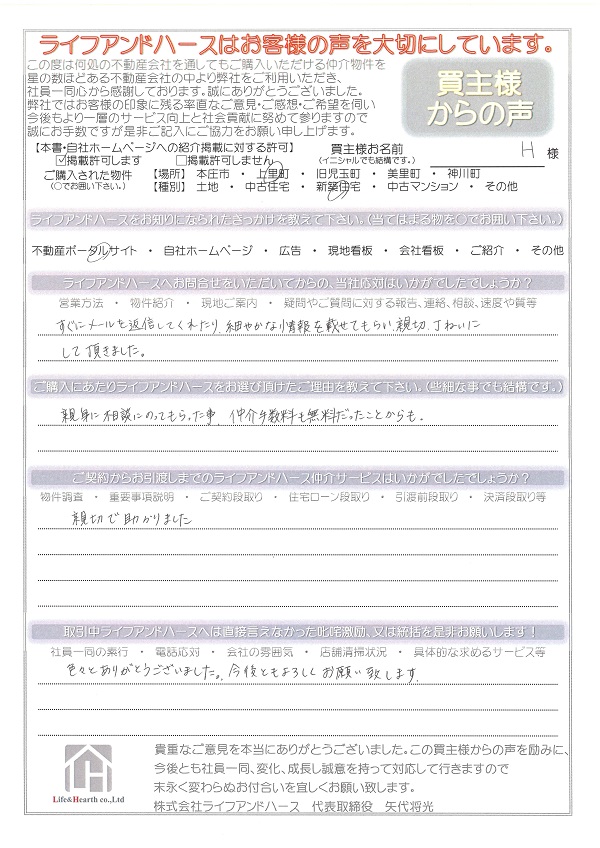 ライフアンドハースはお客様の声を大切にしています。
この度は何処の不動産会社を通してもご購入いただける仲介物件を
星の数ほどある不動産会社の中より弊社をご利用いただき、
社員一同心から感謝しております。誠にありがとうございました。
弊社ではお客様の印象に残る率直なご意見・ご感想・ご希望を伺い
今後もより一層のサービス向上と社会貢献に努めて参りますので
誠にお手数ですが是非ご記入にご協力をお願い申し上げます。
買主様
からの声
【本書・自社ホームページへの紹介掲載に対する許可】
☑掲載許可します □掲載許可しません
買主様お名前
(イニシャルでも結構です。)
H 様
ご購入された物件
(○でお囲い下さい。)
【場所】 本庄市 ・ 上里町 ・ 旧児玉町 ・ 美里町 ・ 神川町
【種別】 土地 ・ 中古住宅 ・ 新築住宅 ・ 中古マンション ・ その他
ライフアンドハースをお知りになられたきっかけを教えて下さい。(当てはまる物を○でお囲い下さい。)
不動産ポータルサイト ・ 自社ホームページ ・ 広告 ・ 現地看板 ・ 会社看板 ・ ご紹介 ・ その他
ライフアンドハースへお問合せをいただいてからの、当社応対はいかがでしたでしょうか?
営業方法 ・ 物件紹介 ・ 現地ご案内 ・ 疑問やご質問に対する報告、連絡、相談、速度や質等
すぐにメールを返信してくれたり、細やかな情報を載せてもらい、親切、丁ねいに
して頂きました。
ご購入にあたりライフアンドハースをお選び頂けたご理由を教えて下さい。(些細な事でも結構です。)
親身に相談にのってもらった事、仲介手数料も無料だったことからも。
ご契約からお引渡しまでのライフアンドハース仲介サービスはいかがでしたでしょうか?
物件調査 ・ 重要事項説明 ・ ご契約段取り ・ 住宅ローン段取り ・ 引渡前段取り ・ 決済段取り等
親切で助かりました
取引中ライフアンドハースへは直接言えなかった叱咤激励、又は統括を是非お願いします!
社員一同の素行 ・ 電話応対 ・ 会社の雰囲気 ・ 店舗清掃状況 ・ 具体的な求めるサービス等
色々とありがとうございました。今後ともよろしくお願い致します。
貴重なご意見を本当にありがとうございました。この買主様からの声を励みに、
今後とも社員一同、変化、成長し誠意を持って対応して行きますので
末永く変わらぬお付合いを宜しくお願い致します。
Life&Hearth co.,Ltd
株式会社ライフアンドハース 代表取締役 矢代将光